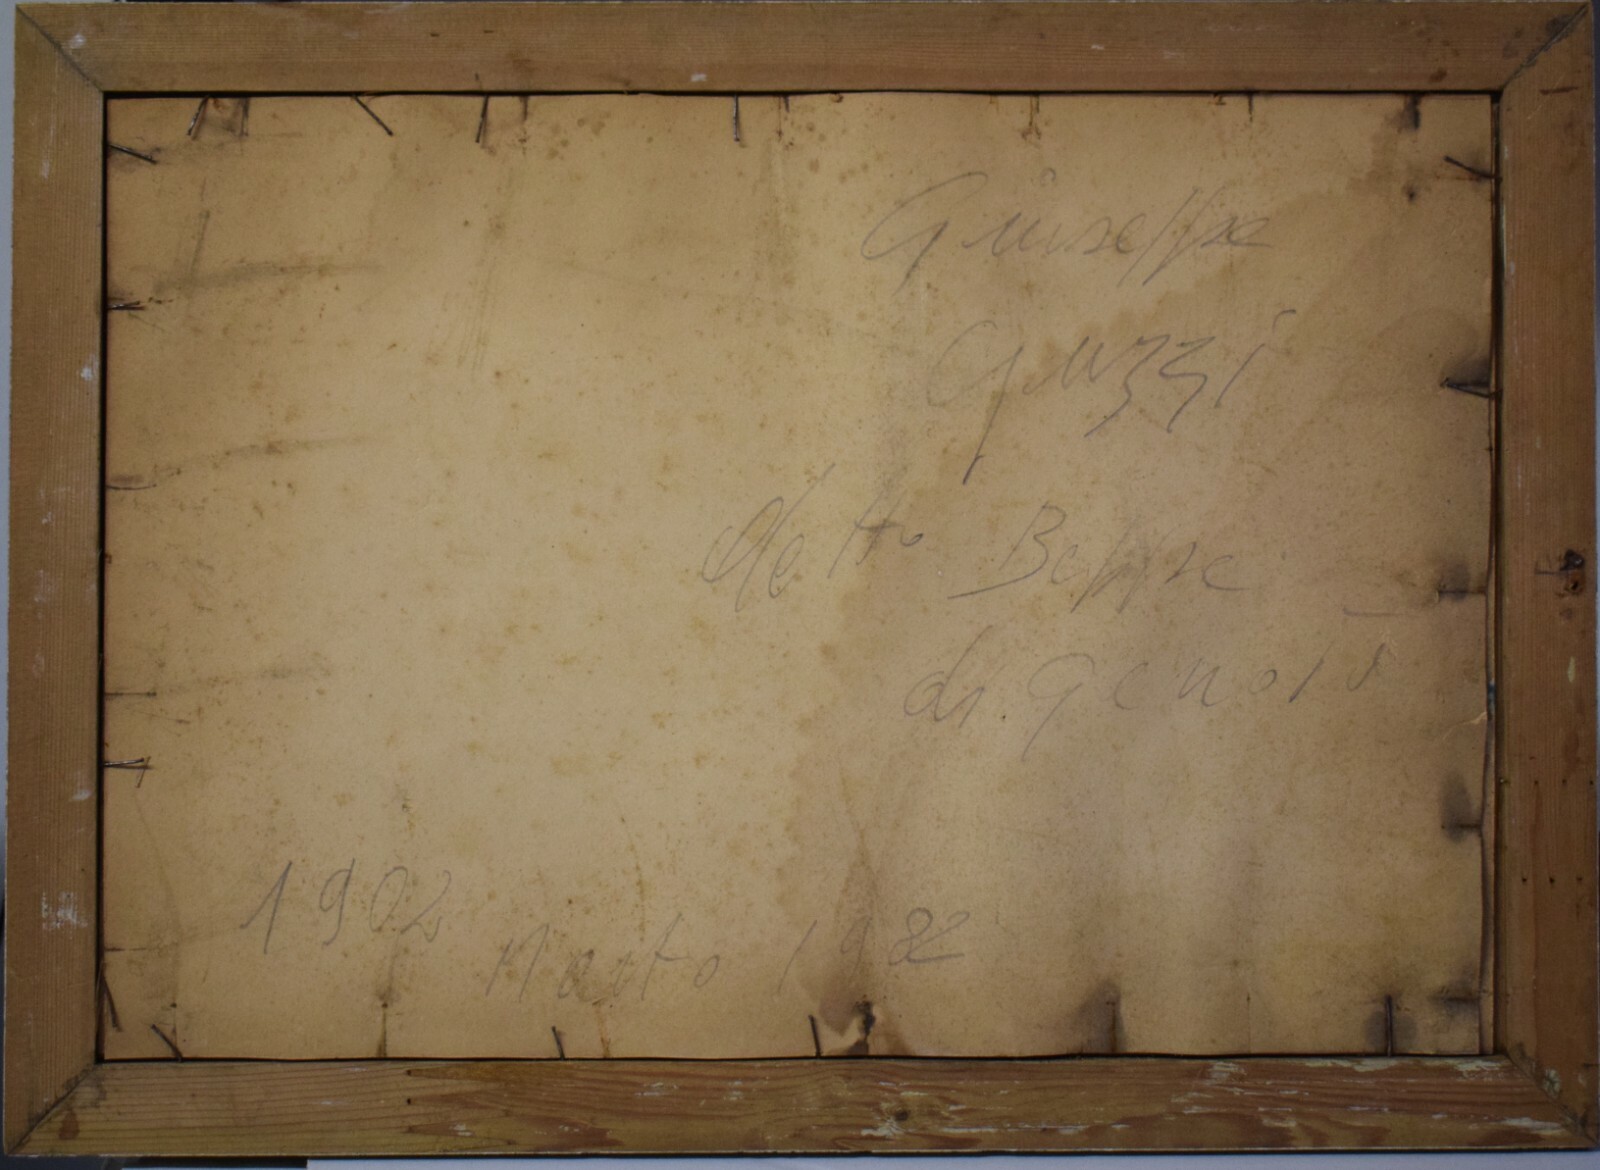 Giuseppe
Guzzi
detto Beppe
di Genova
1902 Morto 1982